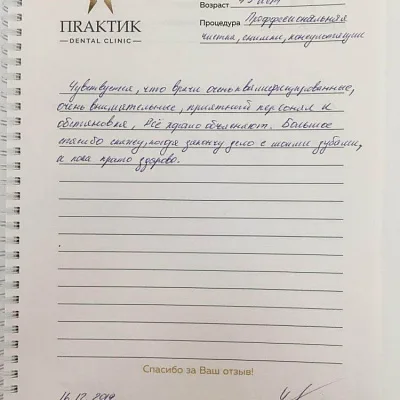 Возраст
ПRАКТИК
DENTAL CLINIC
Процедура Профессиональная
чистка, снимки, консультации
Чувствуется, что врачи очень квалифицированные,
очень внимательные, приятный персонал и
обстановка, Всё ясно объясняют. Большое
спасибо скажу, когда закончу дело с моими зубами,
а пока просто здорово.
Спасибо за Ваш отзыв!
16.12.2019